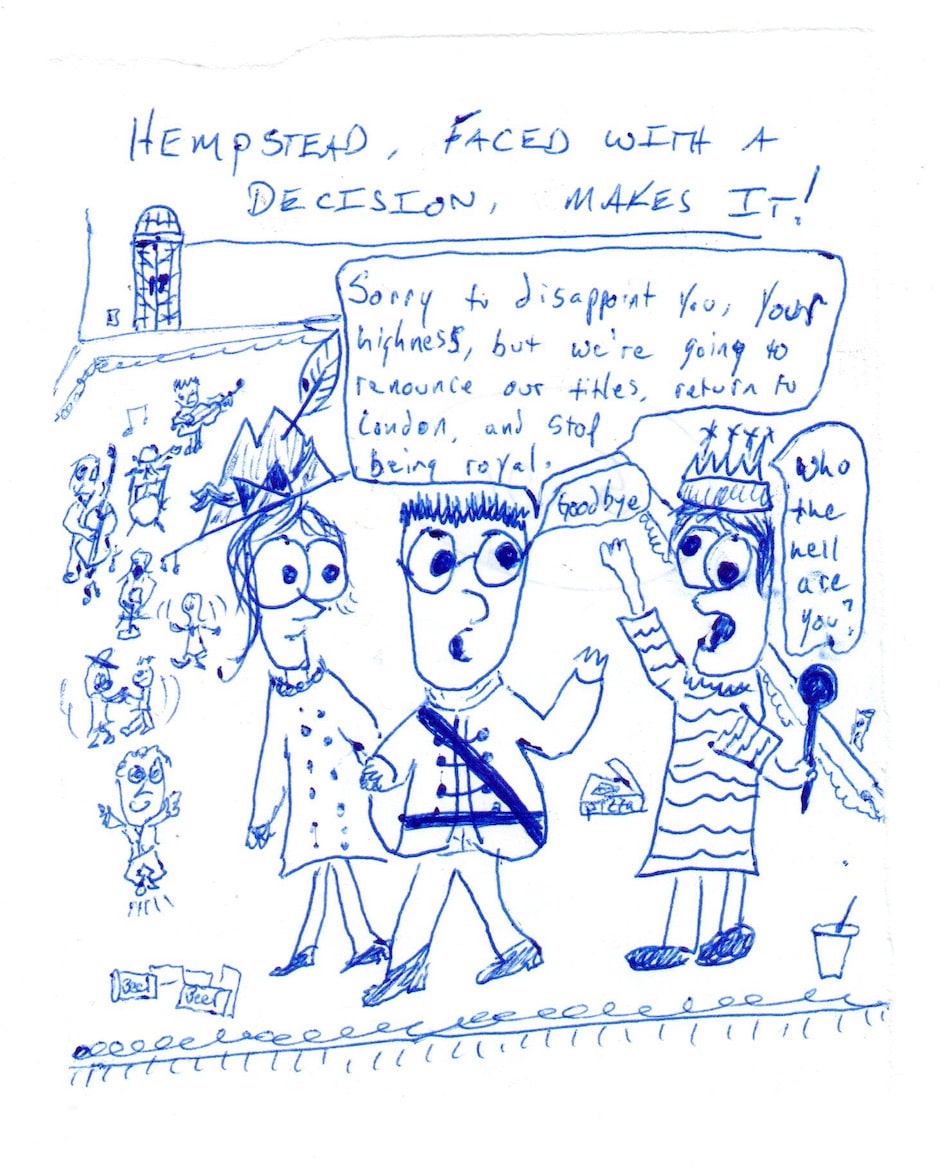 HEMPSTEAD, FACED WITH A
DECISION, MAKES IT!
Sorry to disappoint you, Your
highness, but we're going to
renounce our titles, return to
London, and stop
being royal.
Goodbye
Who
the
hell
are
you?
pizza
Beer
Beer